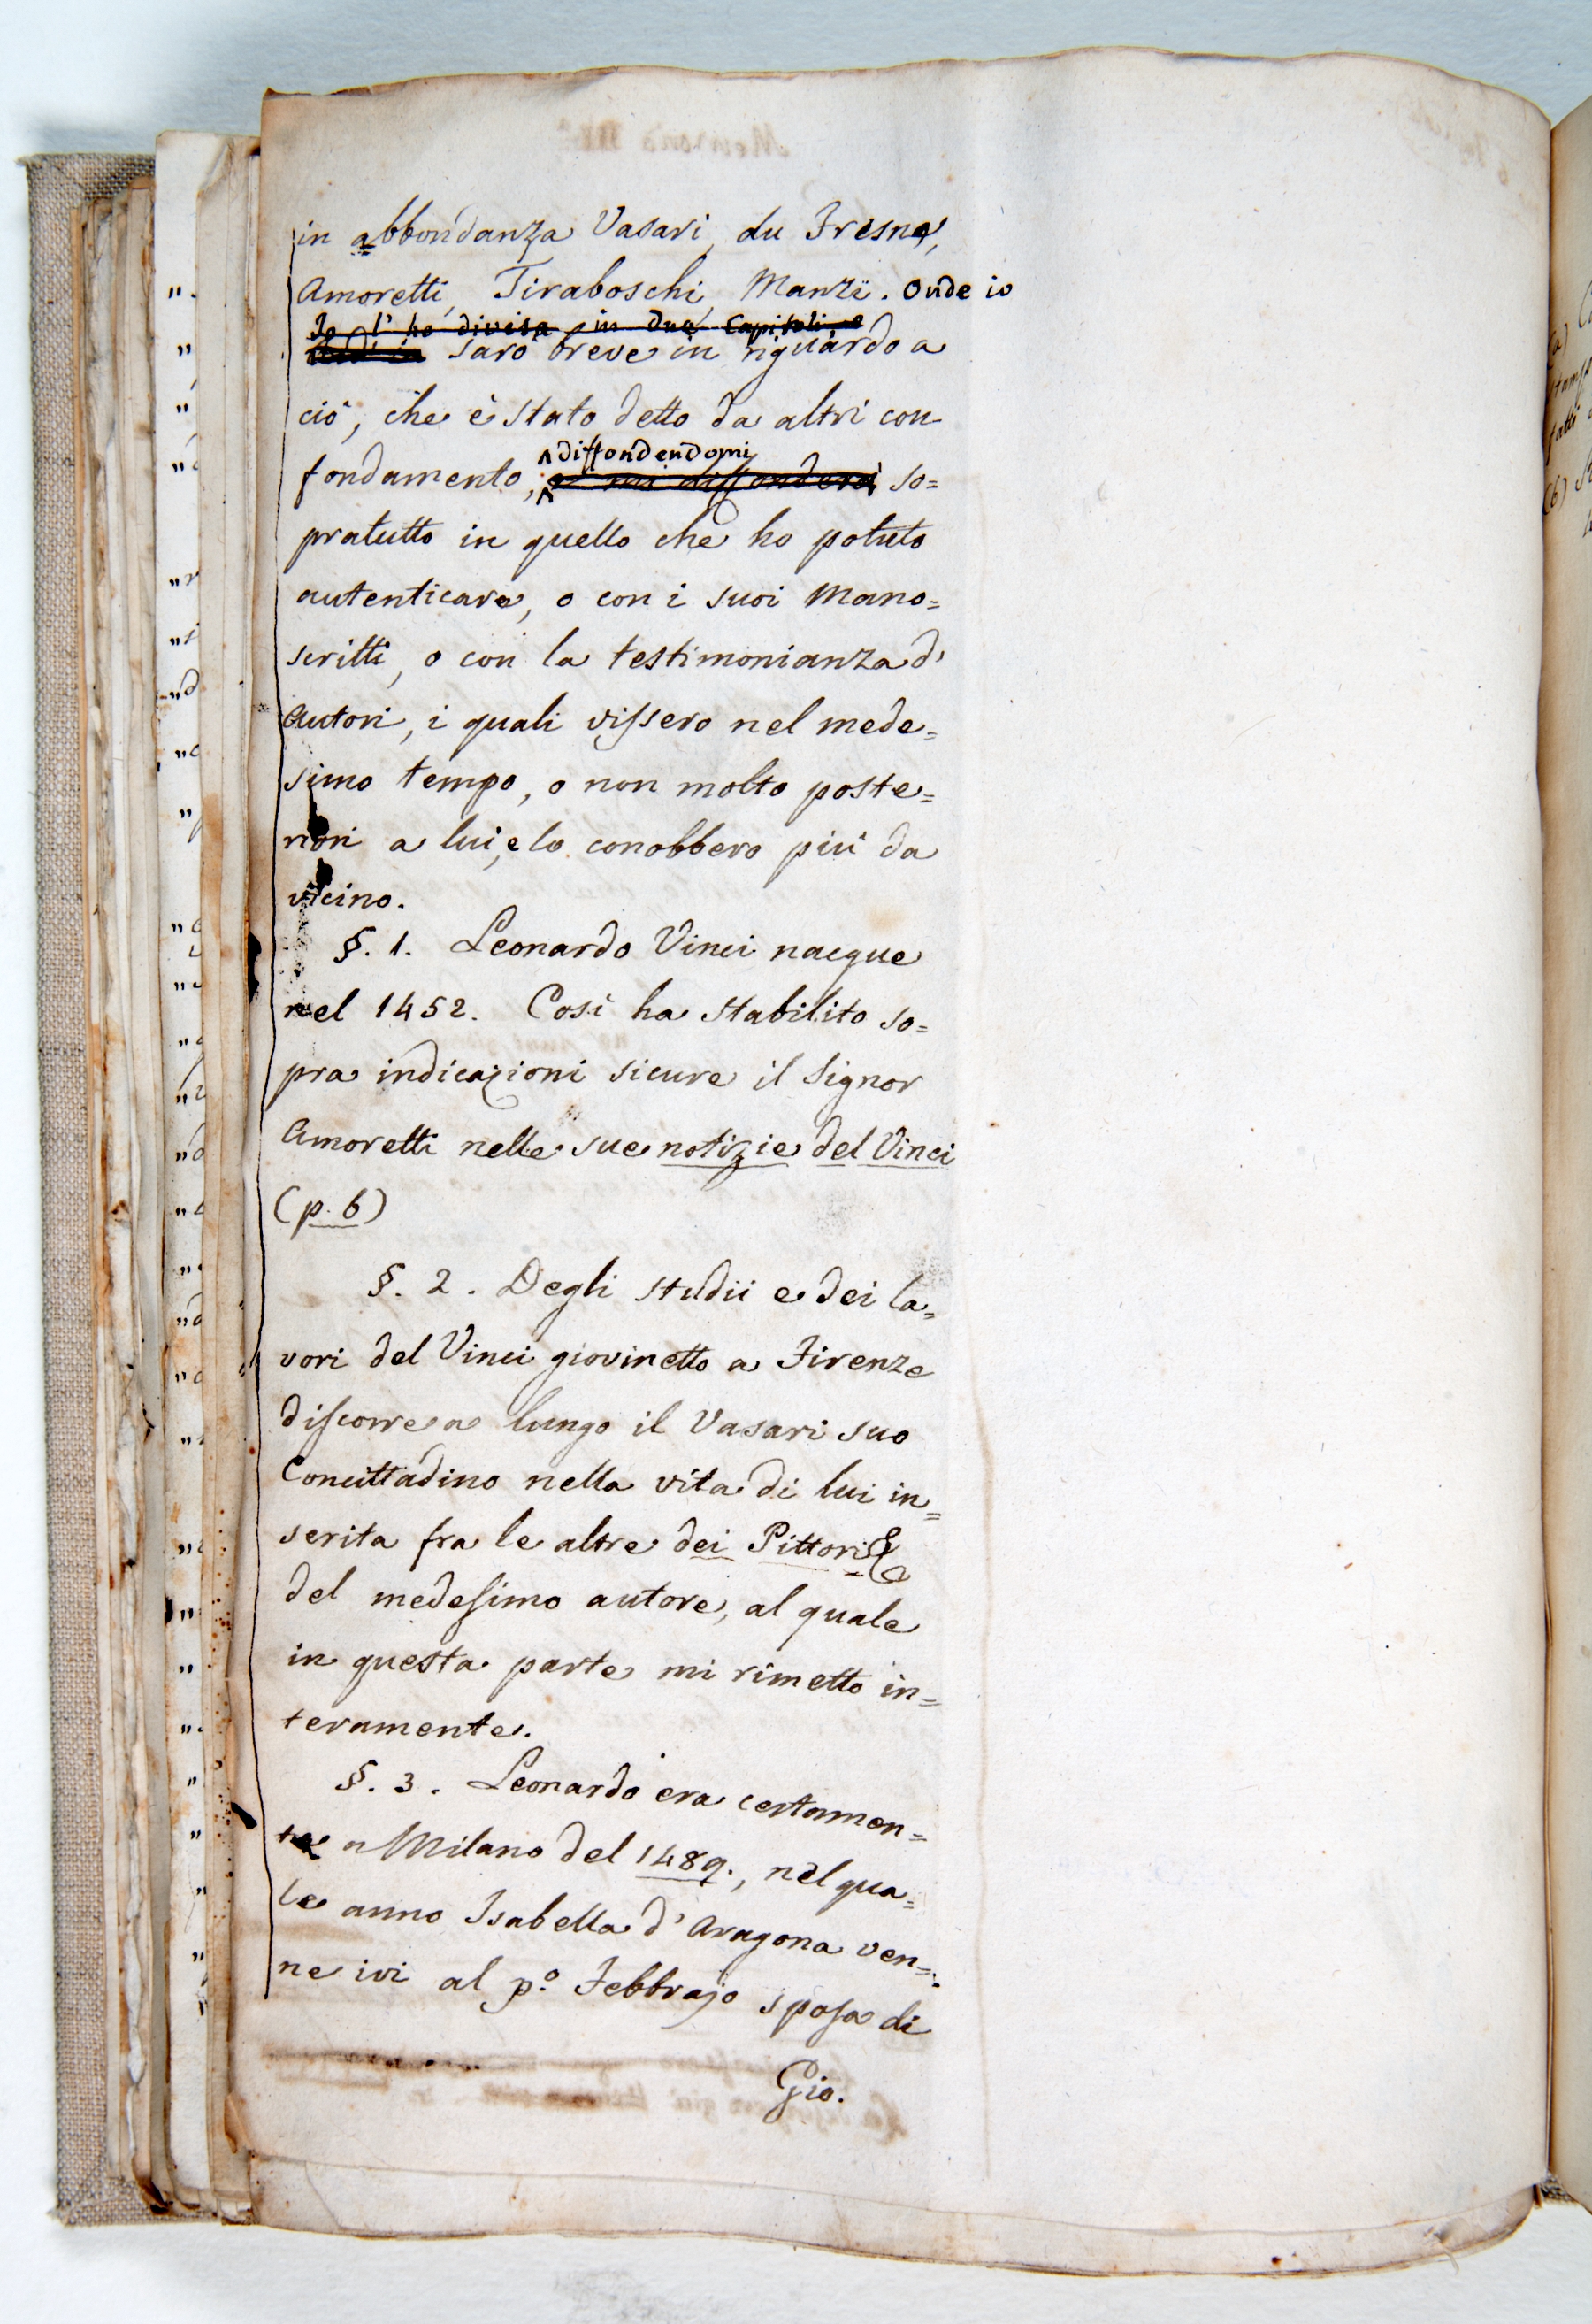 in abbondanza Vasari, du Fresne,
Amoretti, Tiraboschi, Manzi. Onde io
Io l'ho divisa in due Capitoli, e
sarò breve in riguardo a
ciò, che è stato detto da altri con
fondamento, diffondendomi
e mi diffonderò so=
pratutto in quello che ho potuto
autenticare, o con i suoi Mano=
scritti, o con la testimonianza d'
autori, i quali vissero nel mede=
simo tempo, o non molto poste=
riori a lui, e lo conobbero più da
vicino.
§. 1. Leonardo Vinci nacque
nel 1452. Così ha stabilito so=
pra indicazioni sicure il Signor
Amoretti nelle sue notizie del Vinci
(p. 6)
§. 2. Degli studii e dei la=
vori del Vinci giovinetto a Firenze
discorre a lungo il Vasari suo
Concittadino nella vita di lui in=
serita fra le altre dei Pittori &
del medesimo autore, al quale
in questa parte mi rimetto in=
teramente.
§. 3. Leonardo era certamen=
te a Milano del 1489., nel qua=
le anno Isabella d'Aragona ven=
ne ivi al p.º Febbrajo sposa di
Gio.